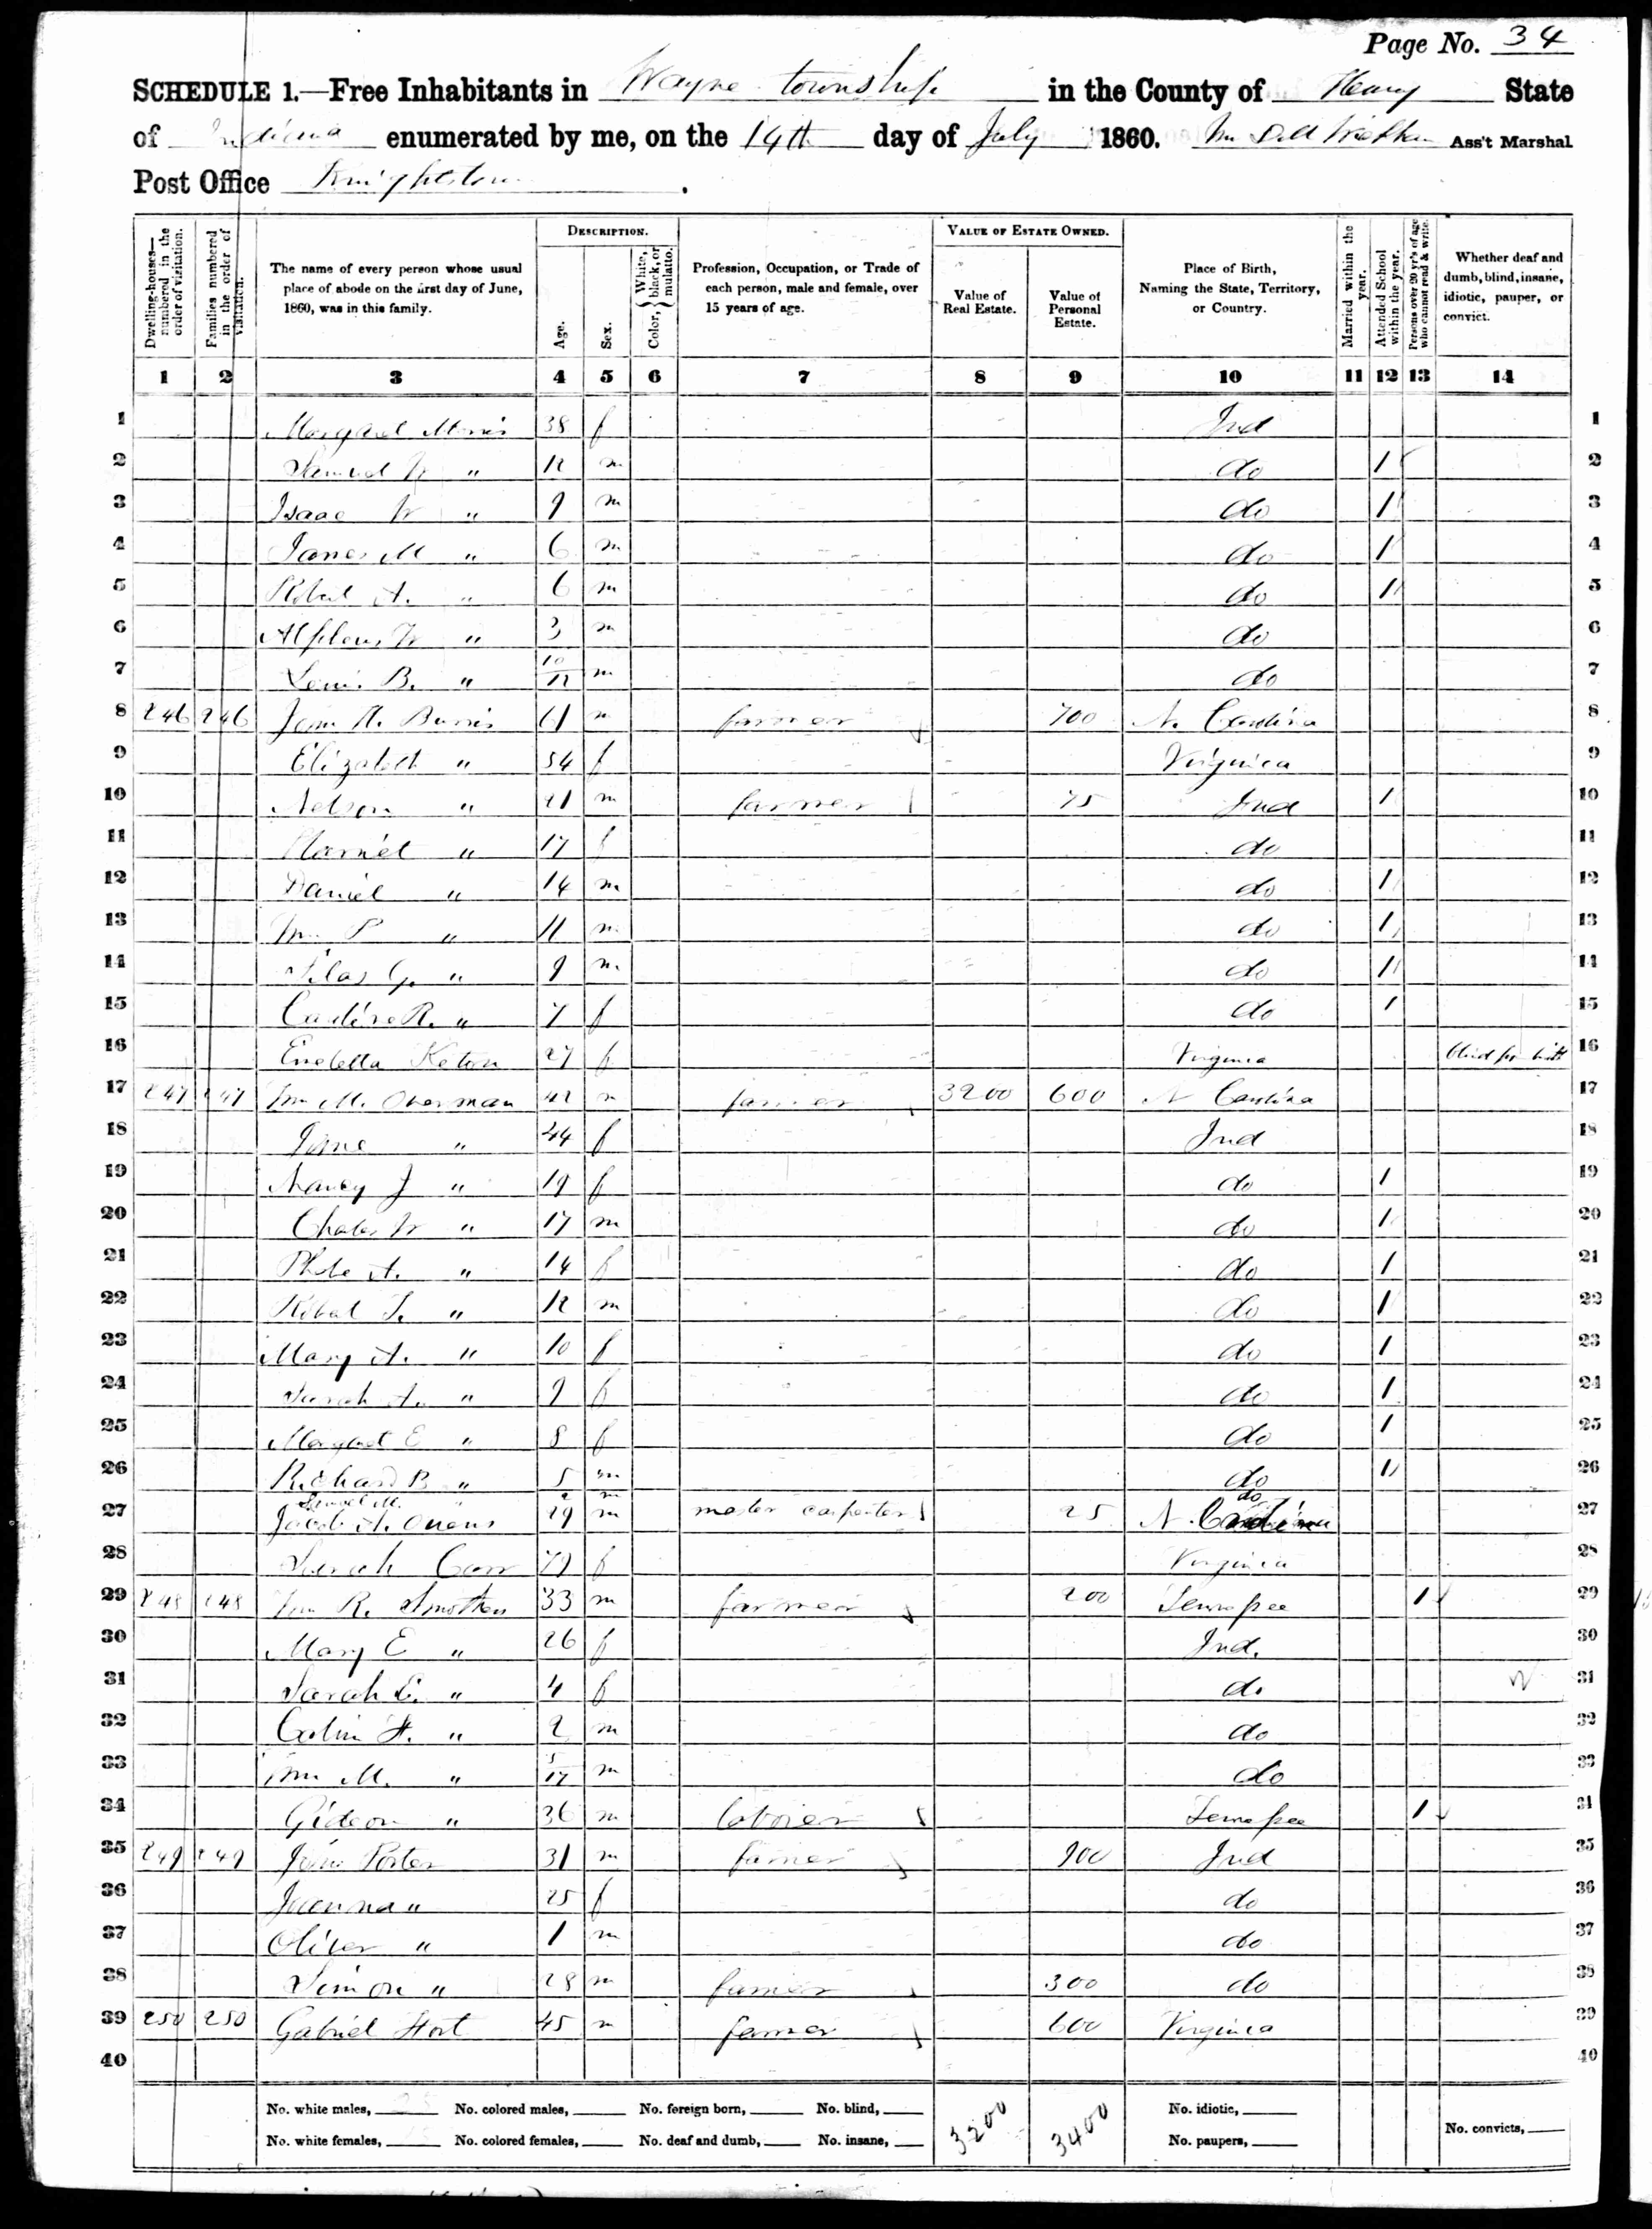 Page No. 34
SCHEDULE 1.—Free Inhabitants in Wayne township in the County of Henry State
of Indiana enumerated by me, on the 14th day of July 1860. Ass't Marshal
Post Office Knightstown.
Dwelling-houses—numbered in the order of visitation.
Families numbered in the order of visitation.
The name of every person whose usual place of abode on the first day of June, 1860, was in this family.
DESCRIPTION.
Age.
Sex.
Color, { White, black, or mulatto.
Profession, Occupation, or Trade of each person, male and female, over 15 years of age.
VALUE OF ESTATE OWNED.
Value of Real Estate.
Value of Personal Estate.
Place of Birth, Naming the State, Territory, or Country.
Married within the year.
Attended School within the year.
Persons over 20 yr's of age who cannot read & write.
Whether deaf and dumb, blind, insane, idiotic, pauper, or convict.
1 2 3 4 5 6 7 8 9 10 11 12 13 14
1 Margaret Morris 38 f Ind 1
2 Samuel W " 12 m do 1 2
3 Isaac W " 9 m do 1 3
4 James M " 6 m do 1 4
5 Robert A. " 6 m do 1 5
6 Alpheus W " 3 m do 6
7 Lewis B. " 10/12 m do 7
8 246 246 H. Burris 61 m farmer 700 N. Carolina 8
9 Elizabeth " 54 f Virginia 9
10 Nelson " 21 m farmer 75 Ind 1 10
11 Harriet " 17 f do 11
12 Daniel " 14 m do 1 12
13 Wm P " 11 m do 1 13
14 Silas G. " 9 m do 1 14
15 Caroline R. " 7 f do 1 15
16 Keton 27 f Virginia blind fr birth 16
17 247 247 Wm M. Overman 42 m farmer 3200 600 N Carolina 17
18 Jane " 44 f Ind 18
19 Nancy J " 19 f do 1 19
20 Charles W " 17 m do 1 20
21 Phebe A. " 14 f do 1 21
22 Robert S. " 12 m do 1 22
23 Mary A. " 10 f do 1 23
24 Sarah A. " 9 f do 1 24
25 Margaret E " 8 f do 1 25
26 Richard B " 5 m do 1 26
M. " 2 m do
27 Jacob A. Owens 29 m master carpenter 25 N. Carolina 27
28 Sarah Carr 79 f Virginia 28
29 248 248 Wm R. Smothers 33 m farmer 200 Tennessee 1 29
30 Mary E " 26 f Ind. 30
31 Sarah E. " 4 f do 31
32 Calvin H. " 2 m do 32
33 Wm M. " 5/12 m do 33
34 Gideon " 36 m laborer Tennessee 1 34
35 249 249 John Porter 31 m farmer 900 Ind 35
36 Joanna " 25 f do 36
37 Oliver " 1 m do 37
38 Simon " 28 m farmer 300 do 38
39 250 250 Gabriel Hort 45 m farmer 600 Virginia 39
40 40
No. white males, No. colored males, No. foreign born, No. blind, 3200 3400 No. idiotic,
No. white females, No. colored females, No. deaf and dumb, No. insane, No. paupers, No. convicts,